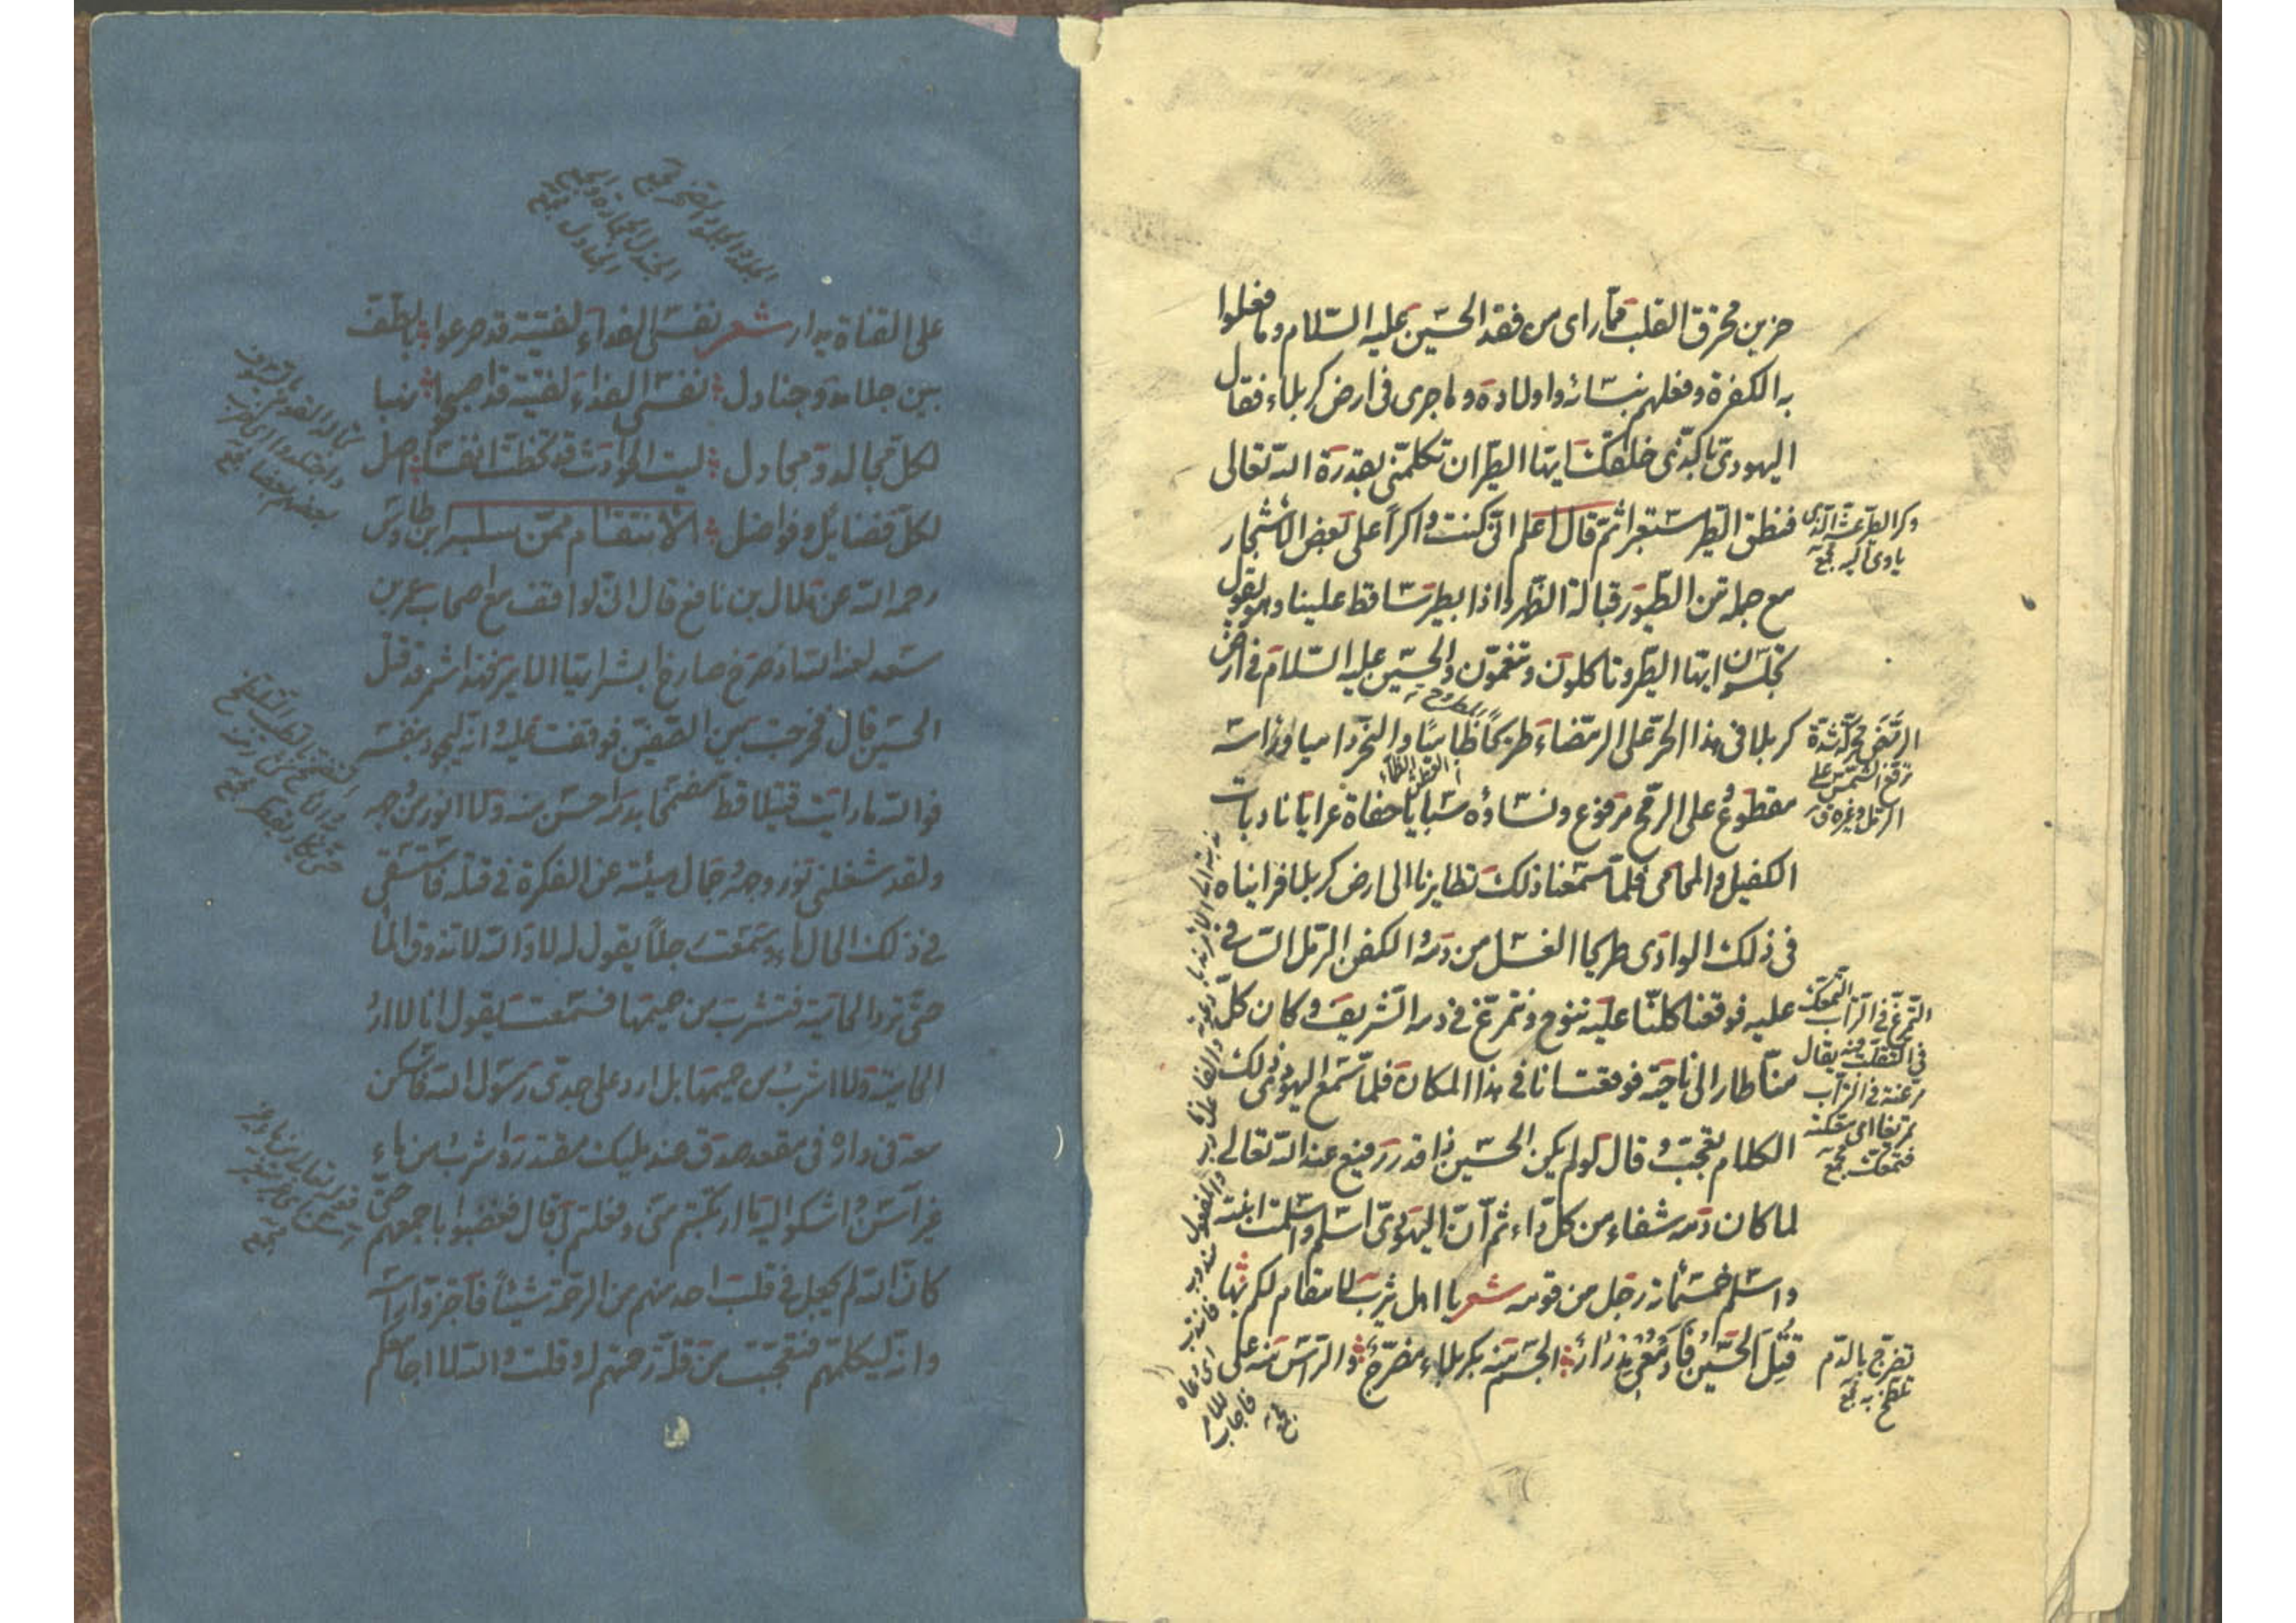 حزين محترق القلب ممّا راى من فقد الحسين عليه السّلام وما فعلوا
به الكفرة وفعلهم بنسائه واولاده وما جرى فى ارض كربلاء فقال
اليهودى بالّذى خلقك ايها الطّير ان تكلّمنى بقدرة الله تعالى
فنطق الطّير مستعبراً ثمّ قال اعلم انّى كنت واكراً على بعض الاشجار
وكر الطّير عشّه الّذى
ياوى اليه مجمع
مع جملة من الطّيور قبالة الظّهر واذا بطير تساقط علينا وهو يقول
تجلسون ايها الطّير وتاكلون وتنعمون والحسين عليه السّلام فى ارض
كربلا فى هذا الحرّ على الرّمضاء طريحاً ظامياً والنّحر داميا وراسه
الرّمض محرّكة شدّة
وقع الشّمس على
الرّمل وغيره ق
مقطوع على الرّمح مرفوع ونساؤه سبايا حفاة عرايا نادبات
الكفيل والمحامى فلمّا سمعنا ذلك تطايرنا الى ارض كربلا فرايناه
فى ذلك الوادى طريحا الغسل من دمه والكفن الرّمل السّافى
عليه فوقعنا كلّنا عليه ننوح ونتمرّغ فى دمه الشّريف وكان كلّ
التّمرّغ فى التّراب التّمعّك
فى التّقلّب فيه يقال
مرّغته فى التّراب
تمريغا اى معكته
فتمعّك مجمع
منّا طار الى ناحية فوقعت انا فى هذا المكان فلمّا سمع اليهودى ذلك
الكلام تعجّب وقال لو لم يكن الحسين ذا قدر رفيع عند الله تعالى
لما كان دمه شفاء من كلّ داء ثمّ انّ اليهودىّ اسلم واسلمت ابنته
واسلم خمسمائة رجل من قومه شعر يا اهل يثرب لا مقام لكم بها
قُتِلَ الحسينُ فادمعى مدرار الجسم منه بكربلاء مضرّج والرّاس منه على
تضرّج بالدّم
تلطّخ به مجمع
على القناة يدار شعر نفسى الفداء لفتية قد صرعوا بالطّفّ
بين جلامد وجنادل نفسى الفداء لفتية قد اصبحوا نهبا
لكلّ مجالد ومجادل ليت الحوادث قد تخطّت انفسا اصل
لكلّ فضايل وفواضل الانتقام ممّن سلبه ابن طاوس
رحمه الله عن هلال بن نافع قال انّى لواقف مع اصحاب عمر بن
سعد لعنه الله اذ صرخ صارخ ابشر ايّها الامير فهذا شمر قد قتل
الحسين قال فخرجت بين الصّفّين فوقفت عليه وانّه ليجود بنفسه
فوالله ما رايت قتيلا قطّ مضمّخا بدمه احسن منه ولا انور من وجهه
ولقد شغلنى نور وجهه وجمال هيئته عن الفكرة فى قتله فاستسقى
فى ذلك الحال ماء وسمعت رجلاً يقول له لا والله لا تذوق الماء
حتّى ترد الحامية فتشرب من حميمها فسمعته يقول انا لا ارد
الحامية ولا اشرب من حميمها بل ارد على جدّى رسول الله فاسكن
معه فى داره فى مقعد صدق عند مليك مقتدر واشرب من ماء
غير آسن واشكو اليه ما ارتكبتم منّى وفعلتم بى قال فغضبوا باجمعهم حتّى
كانّ الله لم يجعل فى قلب احد منهم من الرّحمة شيئاً فاجتزّوا راسه
وانّه ليكلّمهم فتعجّبت من قلّة رحمتهم له وقلت والله لا اجامعكم